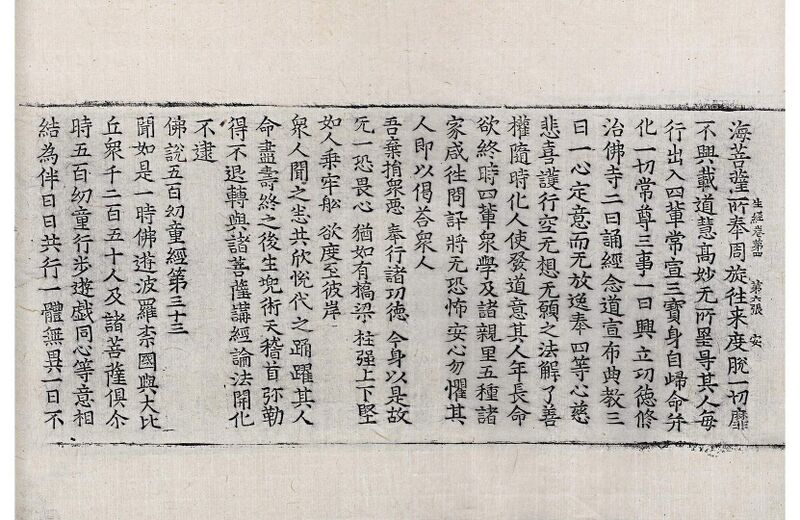 海菩薩所奉周旋往来度脫一切靡
生經卷第四 第六張 安
不興載道慧高妙无所罣导其人每
行出入四輩常宣三寶身自歸命并
化一切常尊三事一曰興立功德修
治佛寺二曰誦經念道宣布典教三
曰一心定意而无放逸奉四等心慈
悲喜護行空无想无願之法解了善
權隨時化人使發道意其人年長命
欲終時四輩衆學及諸親里五種諸
家咸往問訊將无恐怖安心勿懼其
人即以偈荅衆人
吾棄捐衆惡 奉行諸功德 今身以是故
无一恐畏心 猶如有橋梁 柱强上下堅
如人乘牢舩 欲度至彼岸
衆人聞之悲共欣悅代之踊躍其人
命盡壽終之後生兜術天稽首弥勒
得不退轉與諸菩薩講經論法開化
不逮
佛說五百幼童經第三十三
聞如是一時佛遊波羅柰國與大比
丘衆千二百五十人及諸菩薩俱尒
時五百幼童行步遊戲同心等意相
結為伴日日共行一體無異一日不